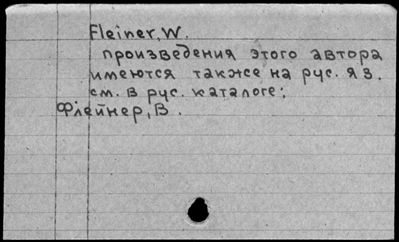 Fleiner, W.
произведения этого автора
имеются также на рус. яз.
см. в рус. каталоге:
Флейнер, В.